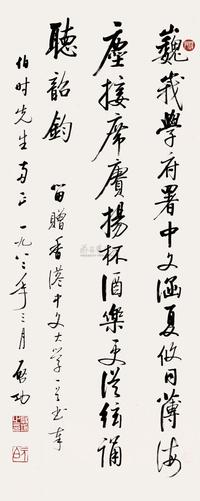 巍峩學府署中文涵夏攸同薄海
塵接席賡揚杯酒樂更從絃誦
聽韶鈞
留贈香港中文大學 書奉
伯時先生 正 一九八二年三月 啟功